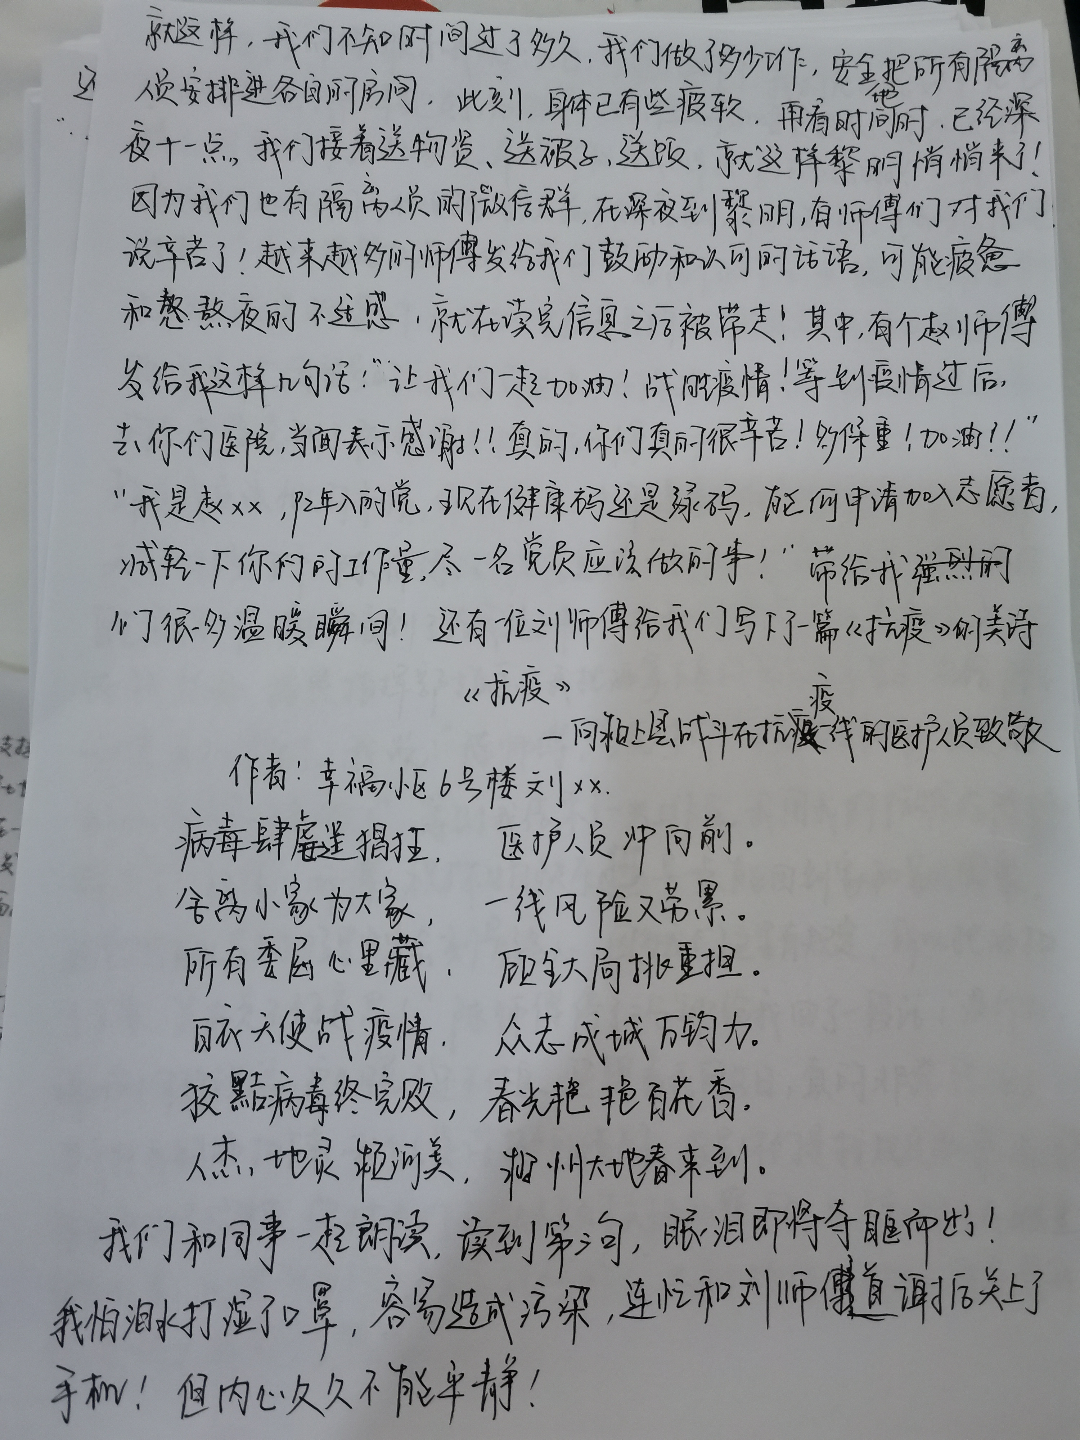 就这样，我们不知时间过了多久，我们做了多少工作，安全地把所有隔离
人员安排进各自的房间，此刻，身体已有些疲软，再看时间时，已经深
夜十一点。我们接着送物资、送被子、送饭，就这样黎明悄悄来了！
因为我们也有隔离人员的微信群，在深夜到黎明，有师傅们对我们
说辛苦了！越来越多的师傅发给我们鼓励和认可的话语，可能疲惫
和熬夜的不适感，就在读完信息之后被带走！其中，有个赵师傅
发给我这样几句话！“让我们一起加油！战胜疫情！等到疫情过后，
去你们医院，当面表示感谢！！真的，你们真的很辛苦！多保重！加油！！”
“我是赵xx，92年入的党，现在健康码还是绿码，能否何申请加入志愿者，
减轻一下你们的工作量，尽一名党员应该做的事！”带给我
们很多温暖瞬间！还有一位刘师傅给我们写下了一篇《抗疫》的美诗
《抗疫》
—向战斗在抗疫一线的医护人员致敬
作者：幸福小区6号楼刘xx.
病毒肆虐逞猖狂，医护人员冲向前。
舍离小家为大家，一线风险又劳累。
所有委屈心里藏，顾全大局挑重担。
白衣天使战疫情，众志成城万钧力。
狡黠病毒终完败，春光艳艳百花香。
人杰地灵美，州大地春来到。
我们和同事一起朗读，读到第三句，眼泪即将夺眶而出！
我怕泪水打湿了口罩，容易造成污染，连忙和刘师傅道谢后关上了
手机！但内心久久不能平静！